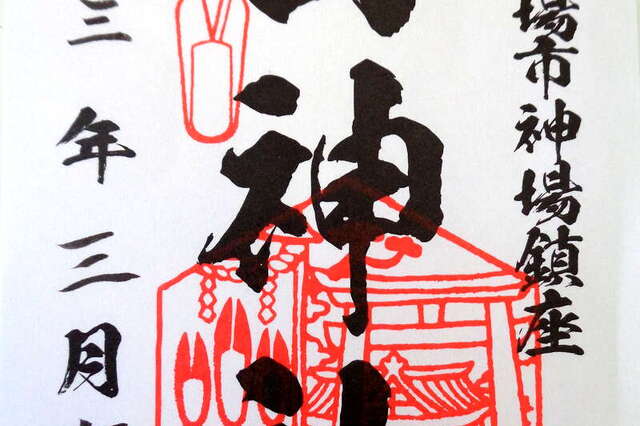 場市神場鎮座
神
三年三月